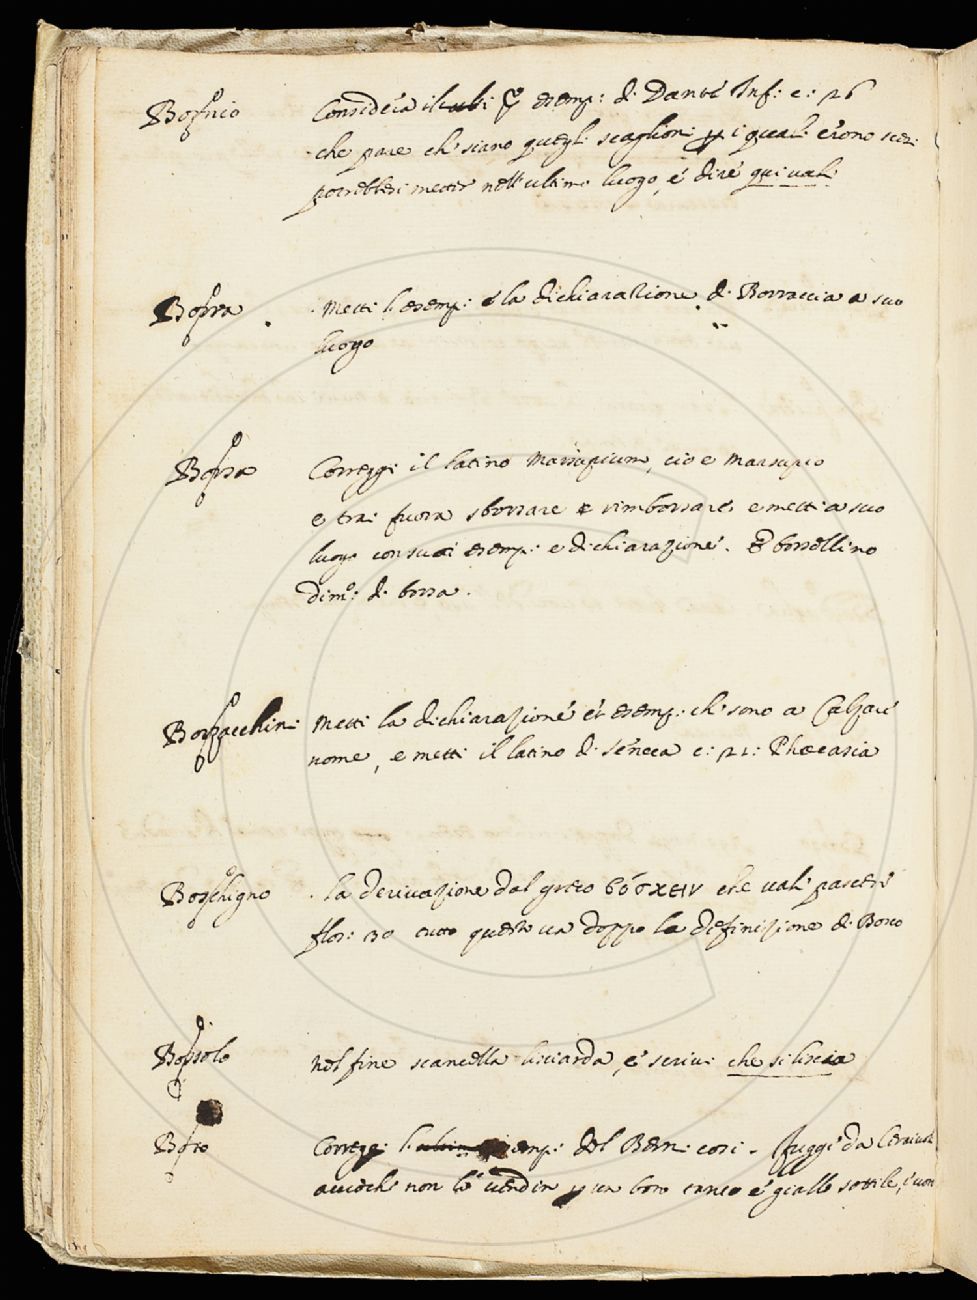 Considera il p esemp: di Dante Inf: c: 26
che pare ch'siano quegli scaglioni p i quali erono
potrebbesi metter nell'ultimo luogo, e dire qui vale
Borra
Metti l'esemp: e la dichiarazione di Borraccia a suo
luogo
Borsa
Corregg: il latino Marsupium, cio e Marsupio
e trai fuora sborsare e rimborsare e metti a suo
luogo con suoi esemp: e dichiarazione. E borsellino
dim.o: di borsa.
Borzacchini
Metti la dichiarazione et esemp: ch'sono a Calzare
nome, e metti il latino di Seneca c: 21: Phaecasia
Boschigno
La derivazione dal greco βόσχειν che vale pascere
flos: 30 tutto questo va doppo la definizione di Bosco
Bossolo
Nel fine scancella liciarda, e scrivi che si liscia
Corregg: l' esemp: del Bern: cosi. fuggi da
accioche non te vendin p un enneo e giallo sottile, e